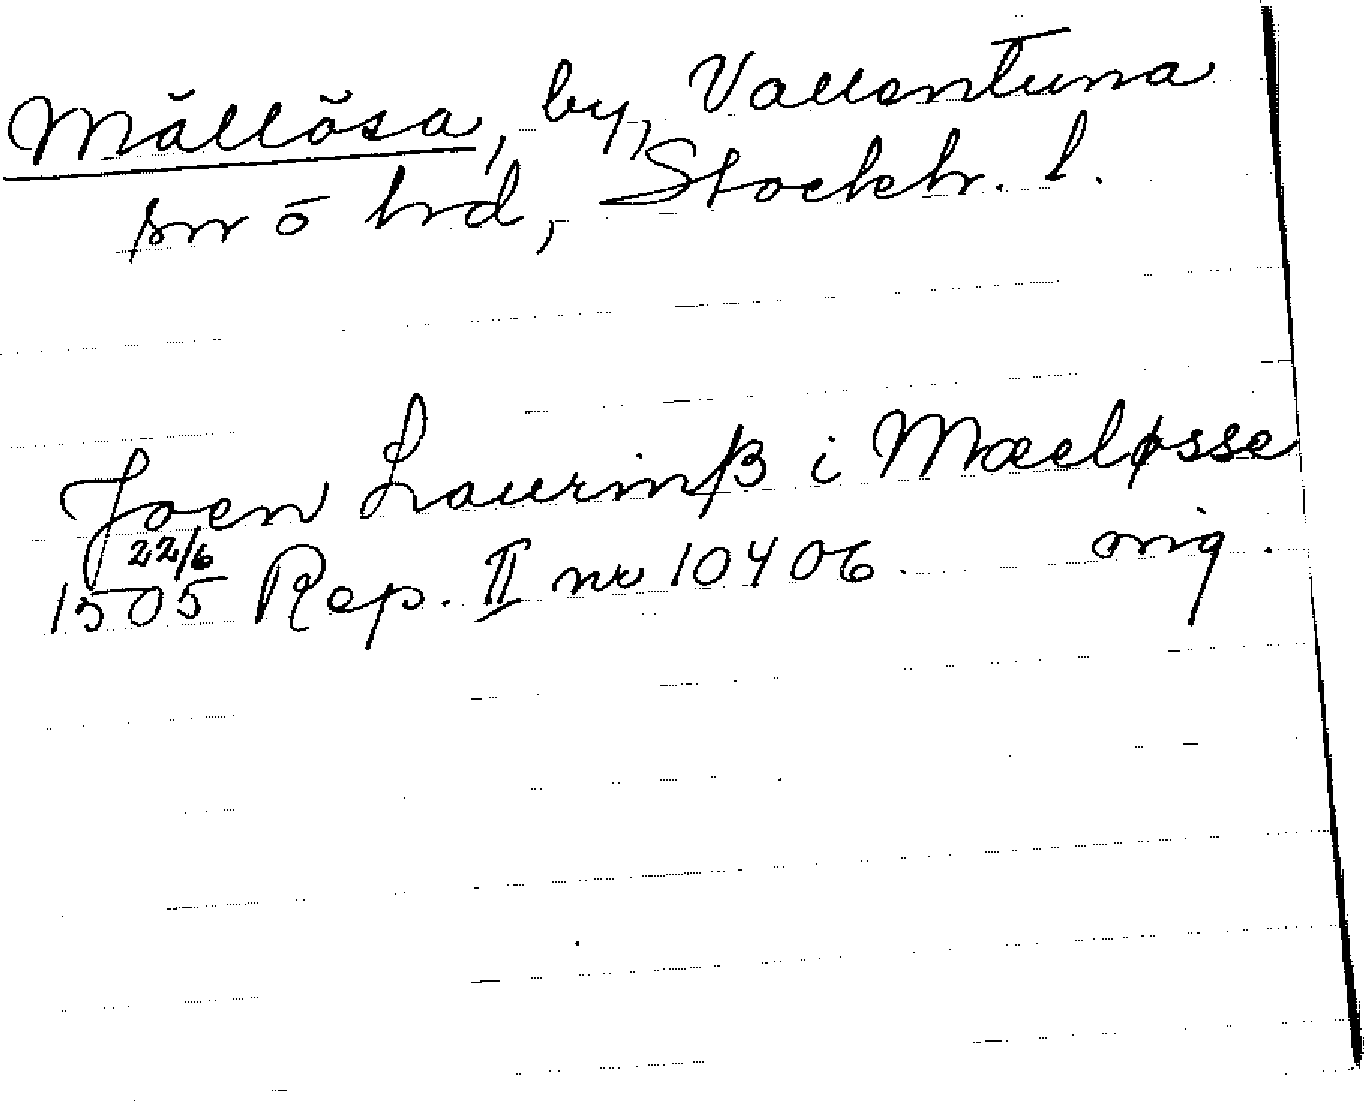 Mällösa, by, Vallentuna
sn o hrd, Stockh. l.
Joen Laurinß i Mæeløsse
22/6
1505 Rep. II nr 10406. orig.